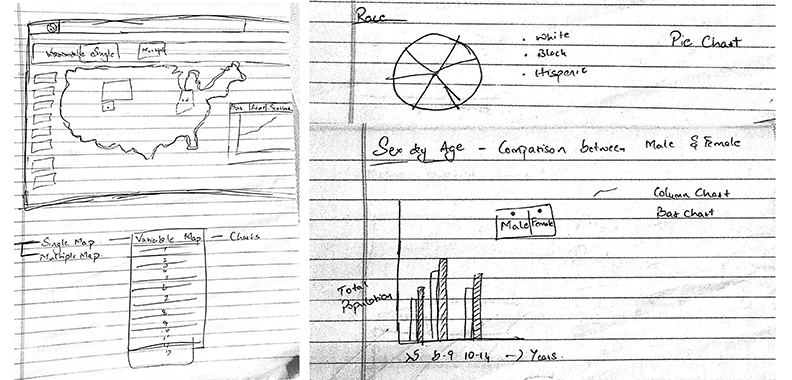 Variable Single
Single Map
Multiple Map
Variable Map
Charts
1
2
3
4
5
6
7
8
9
10
11
12
Race
White
Black
Hispanic
Pie Chart
Sex by Age - Comparison between Male & Female
Column Chart
Bar Chart
Male Female
Total
Population
<5 5-9 10-14 -> Years.